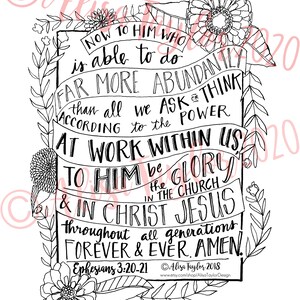 NOW TO HIM WHO
is able to do
FAR MORE ABUNDANTLY
than all we ASK & THINK
ACCORDING to the POWER
AT WORK WITHIN US,
TO HIM be
the GLORY
IN THE CHURCH
& IN CHRIST JESUS
throughout all generations
FOREVER & EVER. AMEN.
Ephesians 3:20-21
© Alisa Taylor 2018
www.etsy.com/shop/AlisaTaylorDesign